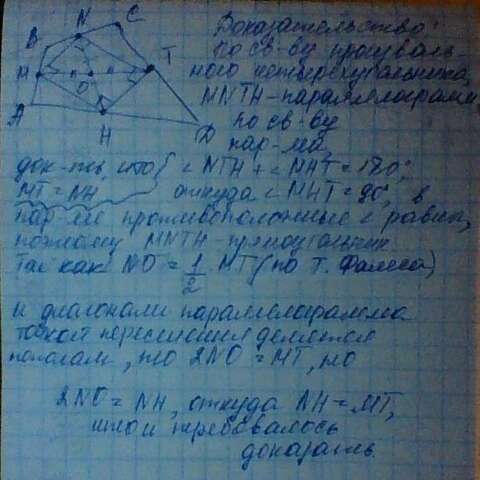 N C
B T
M O
A
H D
Доказательство:
по св-ву произволь-
ного четырехугольника
MNTH-параллелограмм
по св-ву
пар-ма
док-ть, что { ∠NTH + ∠NHT = 180°,
MT = NH откуда ∠MHT = 90°, в
пар-ме противоположные ∠ равны,
поэтому MNTH-прямоугольник
Так как NO = 1/2 MT (по Т. Фалеса)
и диагонали параллелограмма
точкой пересечения делятся
пополам, то 2NO = MT, но
2NO = NH, откуда NH = MT,
что и требовалось
доказать.